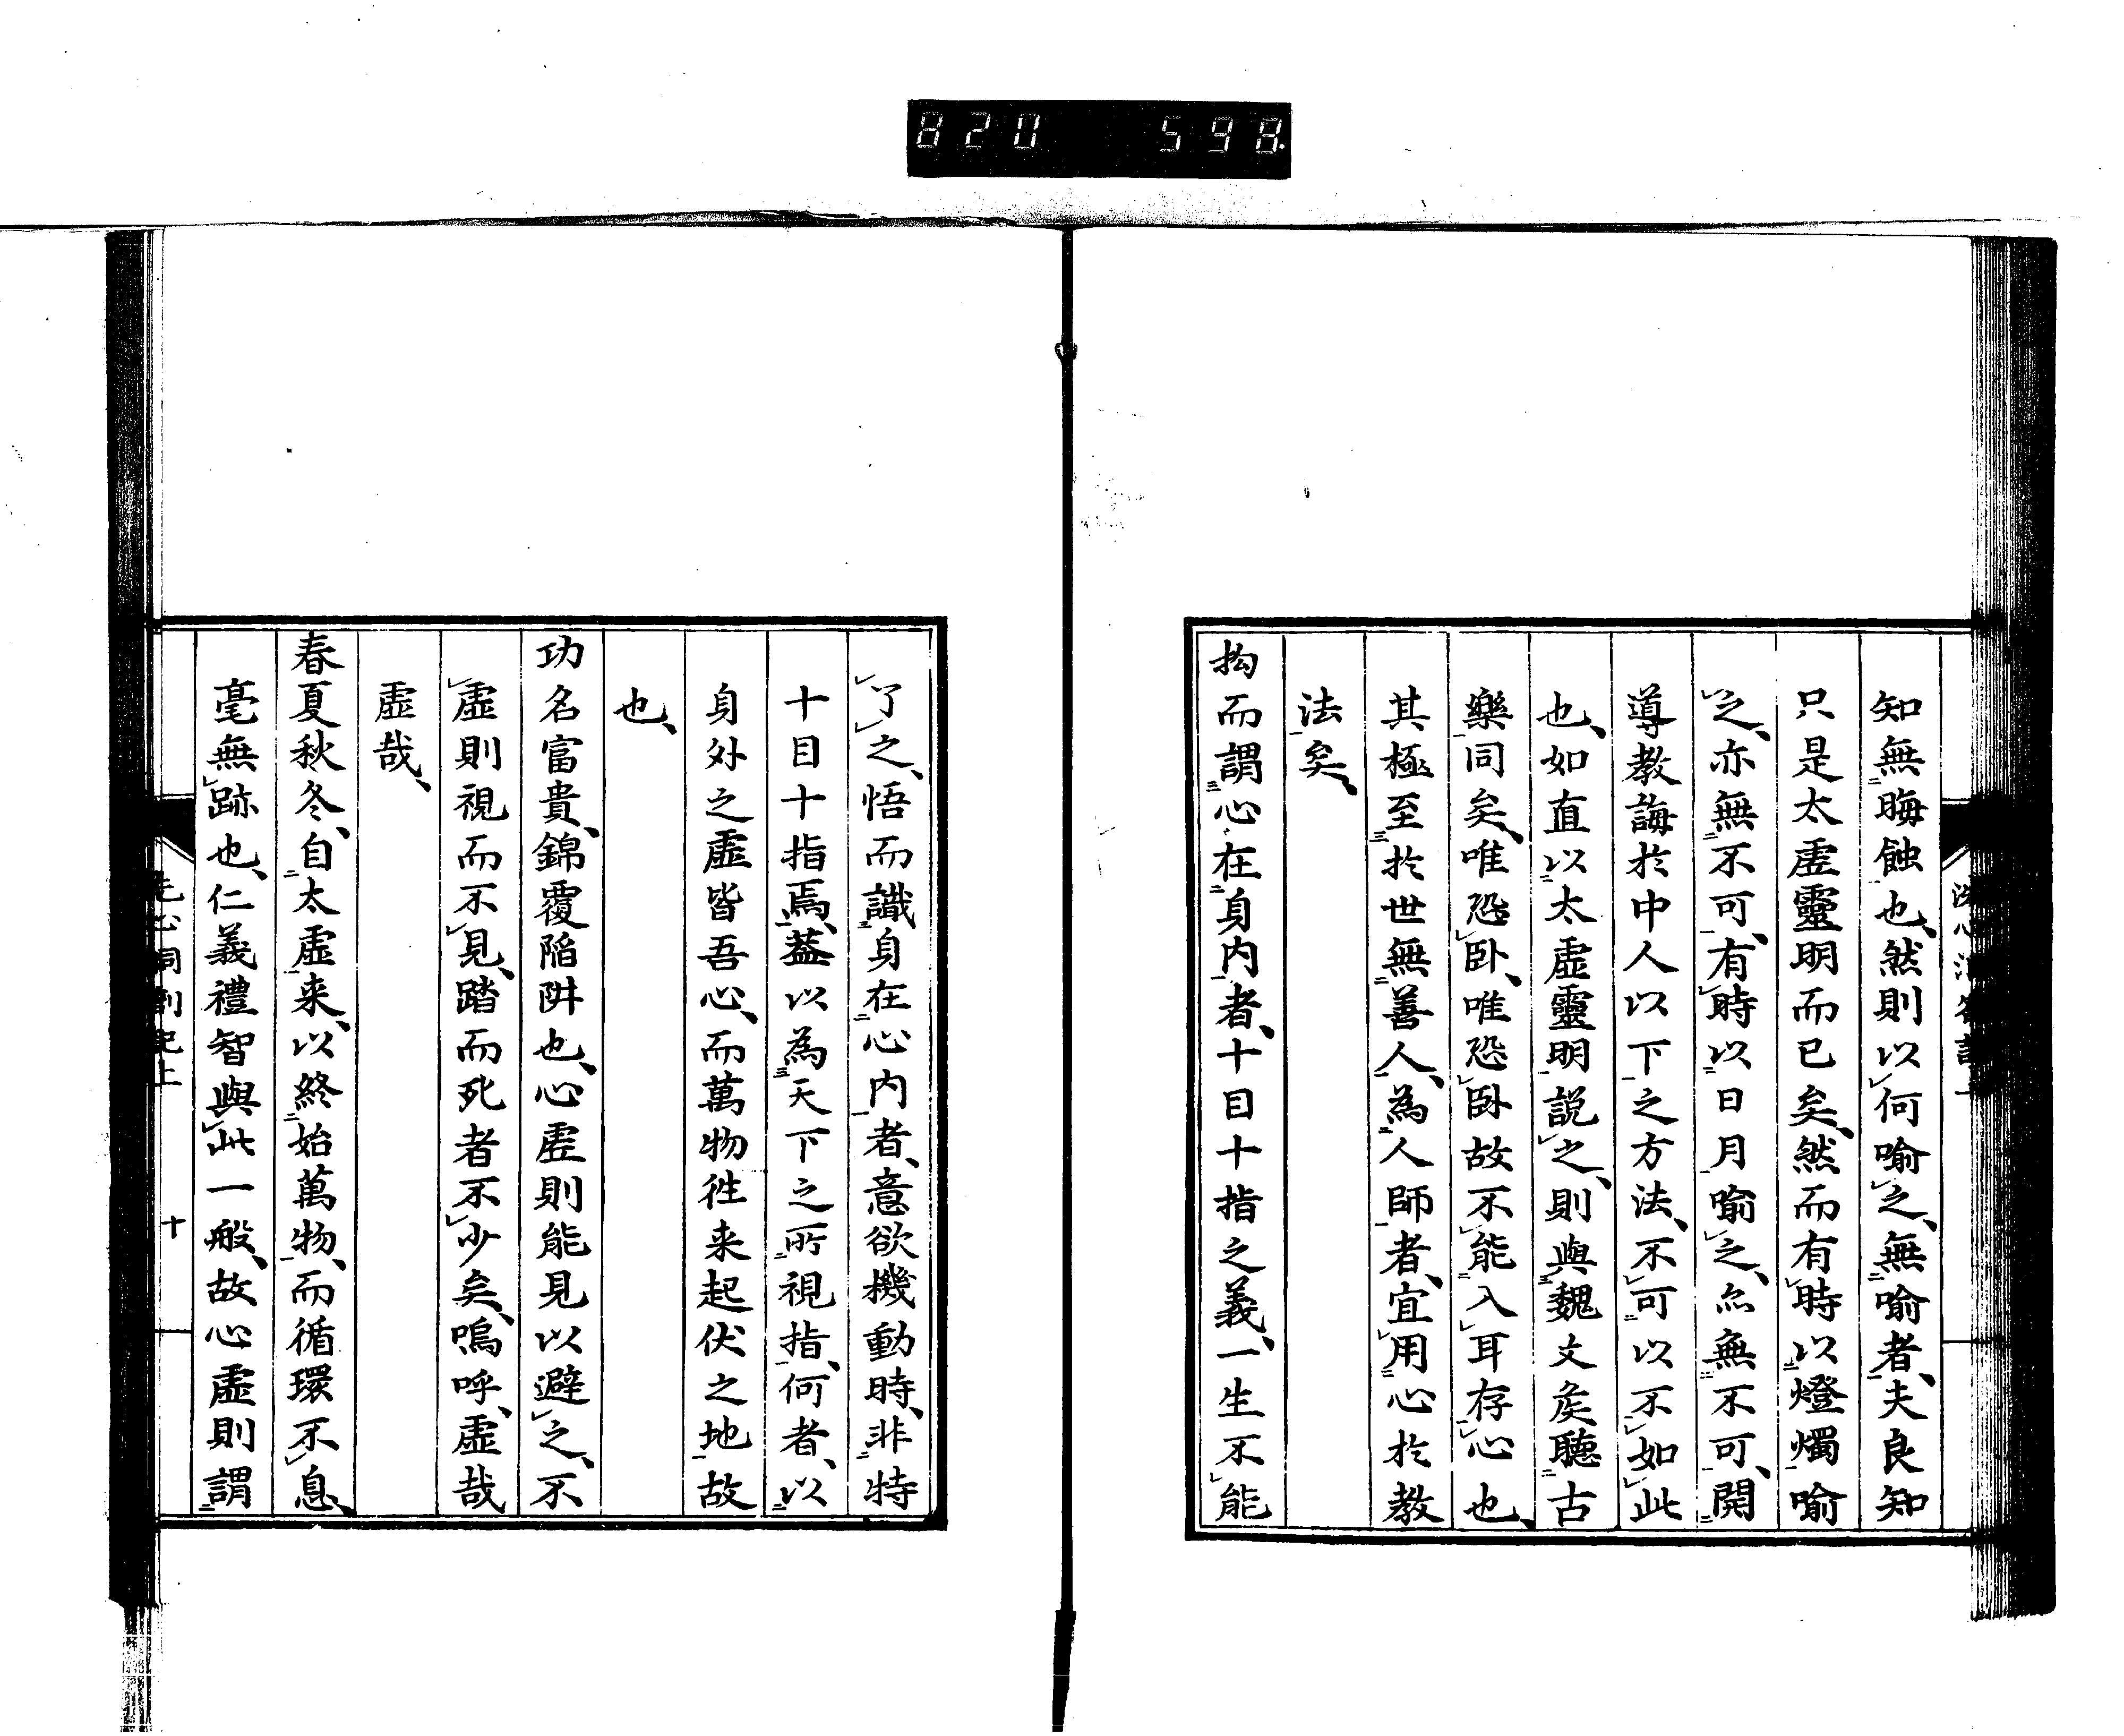 820 598
知無晦蝕也、然則以何喻之、無喻者、夫良知
只是太虛靈明而已矣、然而有時以燈燭喻
之、亦無不可、有時以日月喻之、亦無不可、開
導教誨於中人以下之方法、不可以不如此
也、如直以太虛靈明説之、則與魏文矦聽古
樂同矣、唯恐卧、唯恐卧故不能入耳存心也、
其極至於世無善人、為人師者、宜用心於教
法矣、
拘而謂心在身内者、十目十指之義、一生不能
了之、悟而識身在心内者、意欲機動時、非特
十目十指焉、葢以為天下之所視指、何者、以
身外之虛皆吾心、而萬物徃来起伏之地故
也、
功名富貴、錦覆陷阱也、心虛則能見以避之、不
虛則視而不見、踏而死者不少矣、嗚呼、虛哉
虛哉、
春夏秋冬、自太虛来、以終始萬物、而循環不息、
毫無跡也、仁義禮智與此一般、故心虛則謂
洞劄記上
十